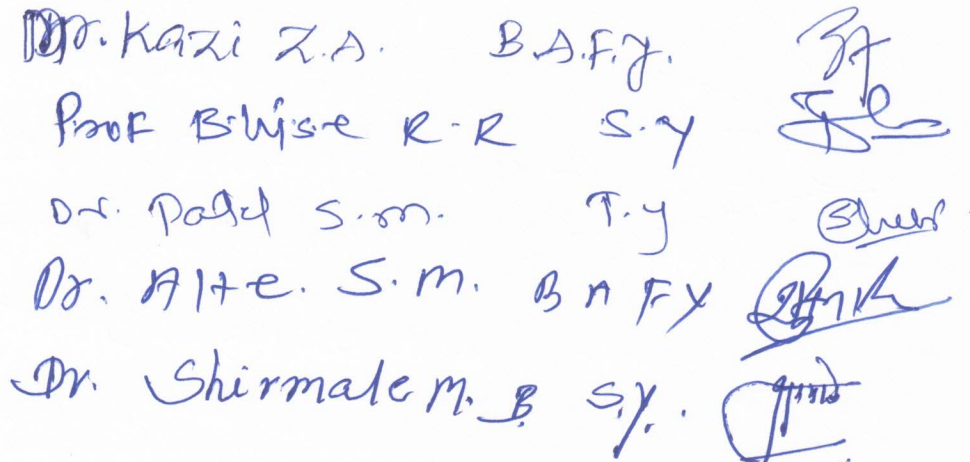 Dr. Kazi Z.A. B.A.F.Y.
Prof Bhise R.R S.Y
Dr. Patil S.M. T.Y
Dr. Alte. S.M. B A F Y
Dr. Shirmale M.B S.Y.